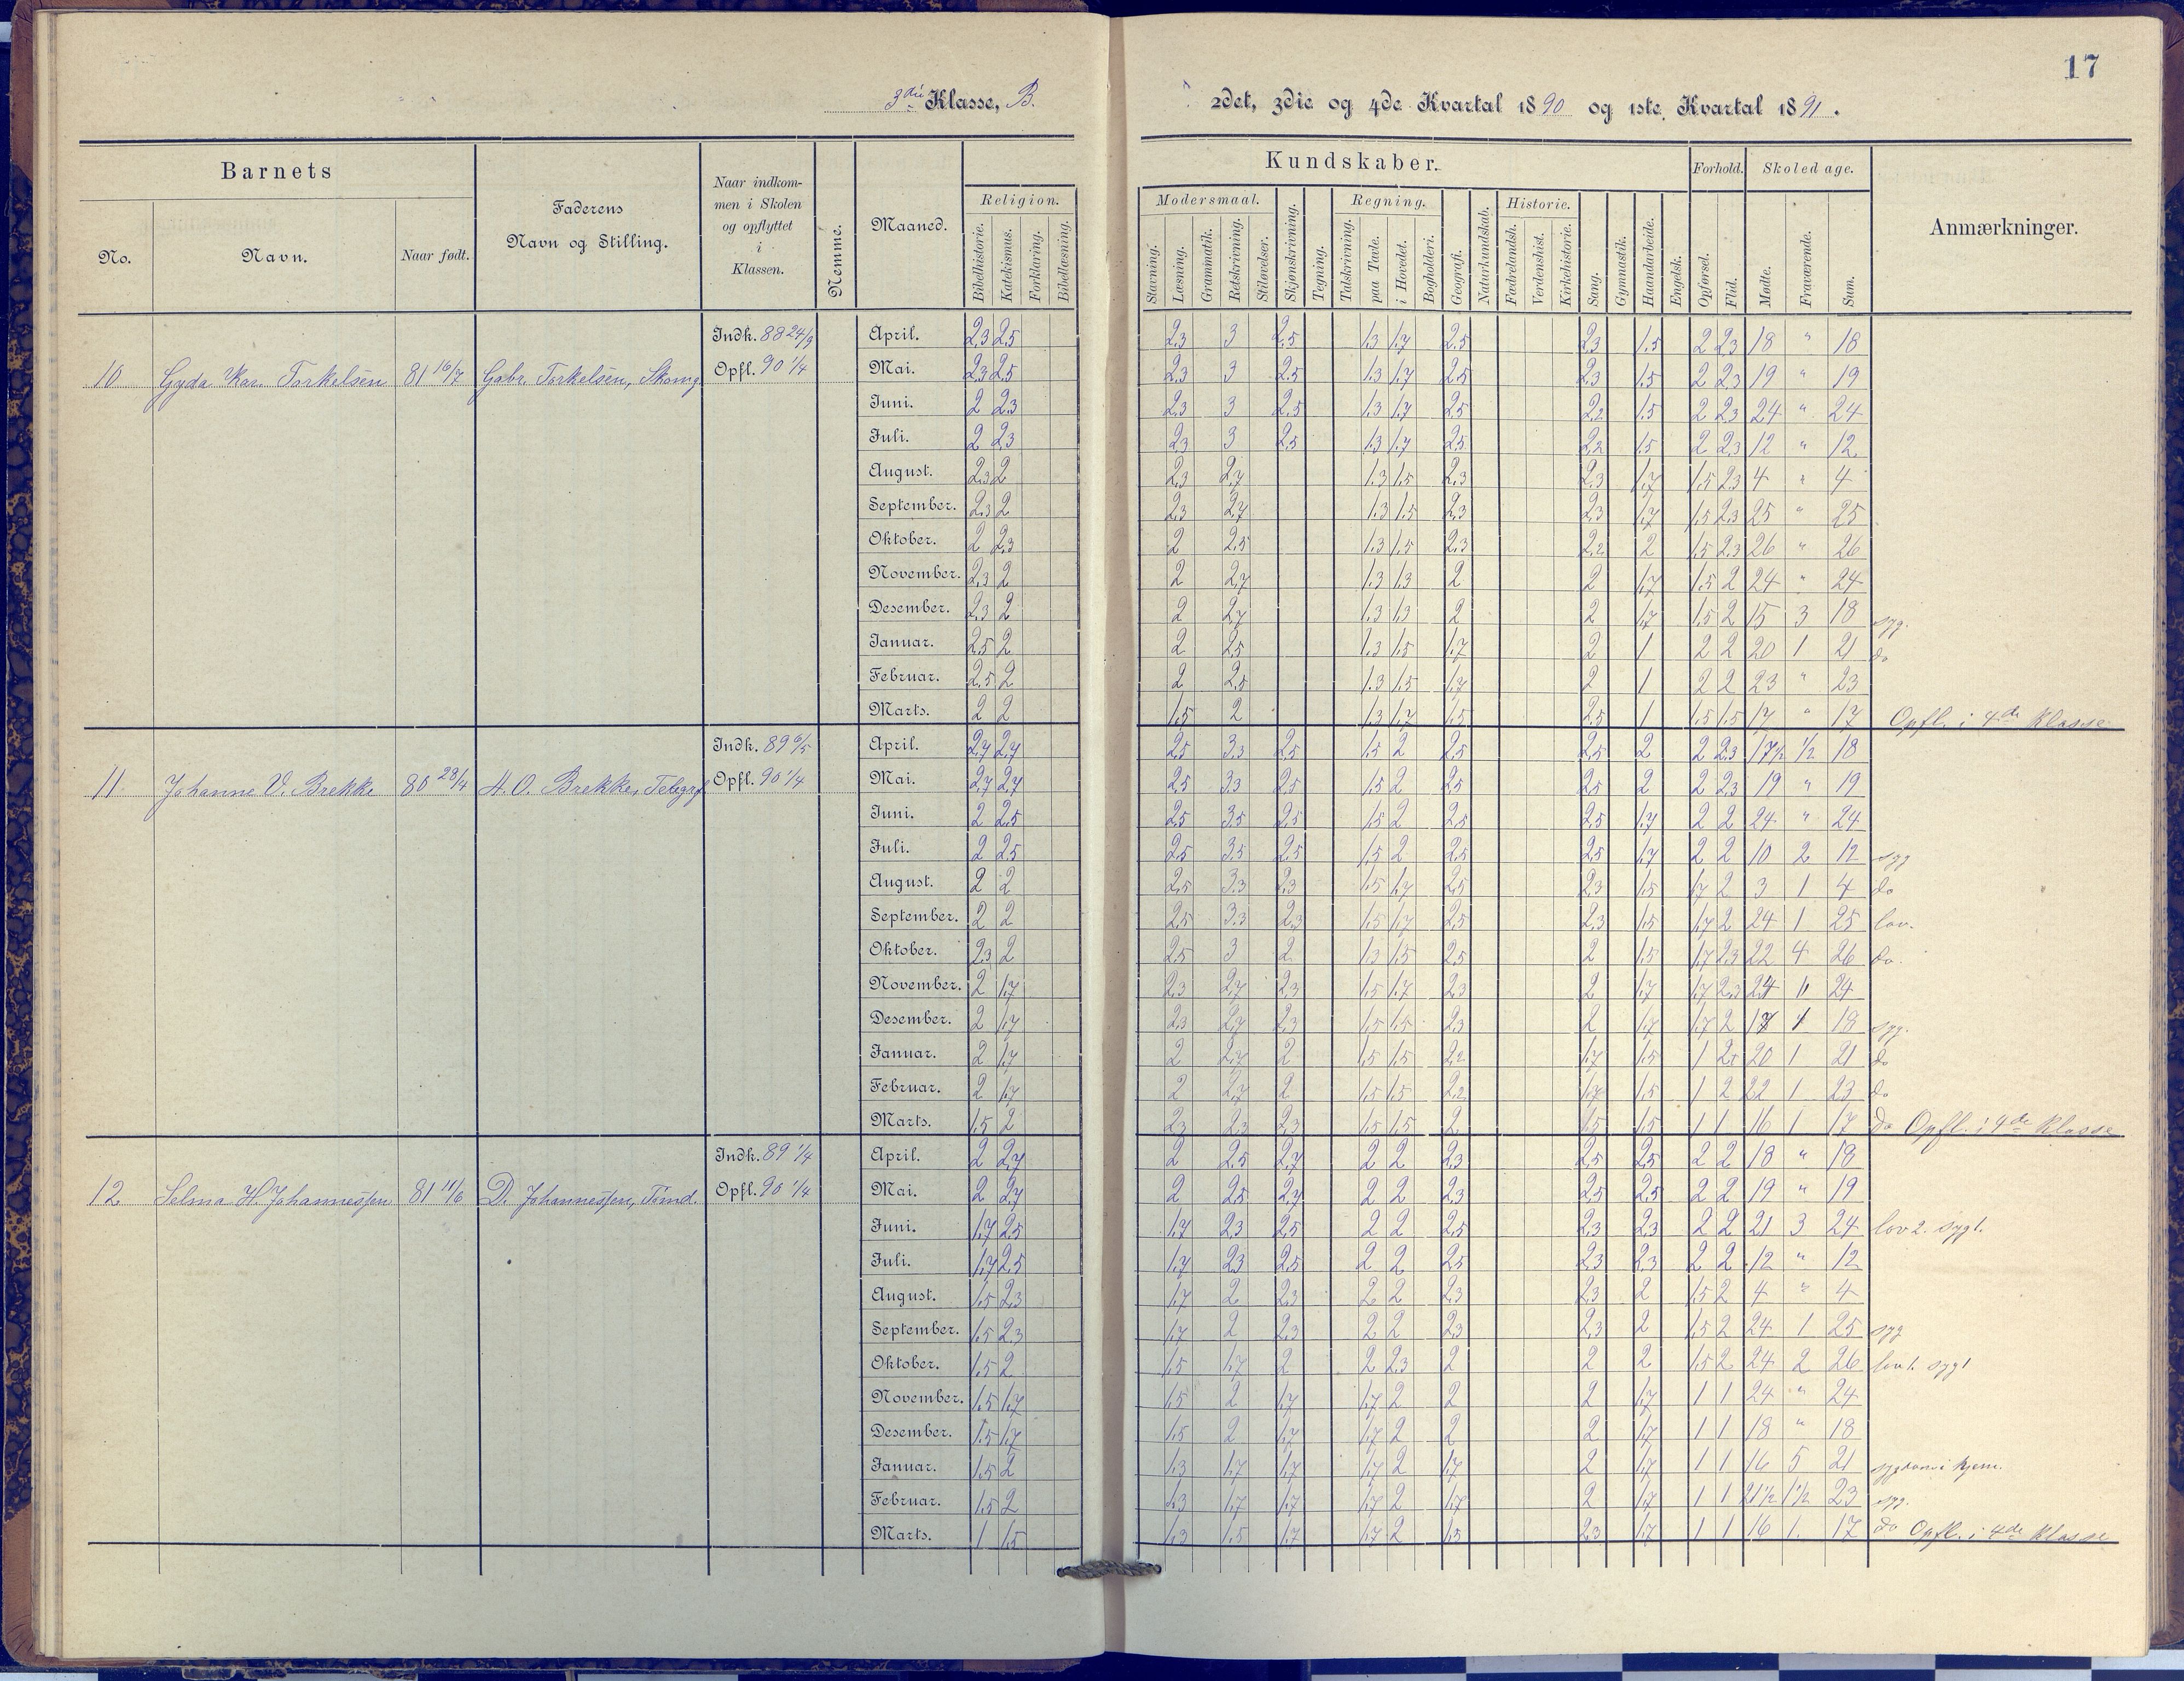 17
3die Klasse, B.
2det, 3die og 4de Kvartal 1890 og 1ste Kvartal 1891.
Barnets
No.
Navn.
Naar født.
Faderens
Navn og Stilling.
Naar indkom-
men i Skolen
og opflyttet
i
Klassen.
Nemme.
Maaned.
Kundskaber.
Religion.
Bibelhistorie.
Katekismus.
Forklaring.
Bibellæsning.
Modersmaal.
Stavning.
Læsning.
Grammatik.
Retskrivning.
Stiløvelser.
Skjønskrivning.
Tegning.
Regning.
Talskrivning.
paa Tavle.
i Hovedet.
Bogholderi.
Geografi.
Naturkundskab.
Historie.
Fædrelandsh.
Verdenshist.
Kirkehistorie.
Sang.
Gymnastik.
Haandarbeide.
Engelsk.
Forhold.
Opførsel.
Flid.
Skoledage.
Mødte.
Fraværende.
Sum.
Anmærkninger.
10 Gyda Kar. Torkelsen 81 16/7 Gabr. Torkelsen, Skomg
Indk. 88 24/9
Opfl. 90 1/4
April. 2,3 2,5 2,3 3 2,5 1,3 1,7 2,5 2,3 1,5 2 2,3 18 " 18
Mai. 2,3 2,5 2,3 3 2,5 1,3 1,7 2,5 2,3 1,5 2 2,3 19 " 19
Juni. 2 2,3 2,3 3 2,5 1,3 1,7 2,5 2,2 1,5 2 2,3 24 " 24
Juli. 2 2,3 2,3 3 2,5 1,3 1,7 2,5 2,2 1,5 2 2,3 12 " 12
August. 2,3 2 2,3 2,7 1,3 1,5 2,3 2,3 1,7 1,5 2,3 4 " 4
September. 2,3 2 2,3 2,7 1,3 1,5 2,3 2,3 1,7 1,5 2,3 25 " 25
Oktober. 2 2,3 2 2,5 1,3 1,5 2,3 2,2 2 1,5 2,3 26 " 26
November. 2,3 2 2 2,7 1,3 1,3 2 2 1,7 1,5 2 24 " 24
Desember. 2,3 2 2 2,7 1,3 1,3 2 2 1,7 1,5 2 15 3 18 syg.
Januar. 2,5 2 2 2,5 1,3 1,5 1,7 2 1 2 2 20 1 21 do
Februar. 2,5 2 2 2,5 1,3 1,5 1,7 2 1 2 2 23 " 23
Marts. 2 2 1,5 2 1,3 1,7 1,5 2,5 1 1,5 1,5 17 " 17 Opfl. i 4de Klasse
11 Johanne V. Brekke 80 28/4 H. O. Brekke, Telegrf
Indk. 89 6/5
Opfl. 90 1/4
April. 2,7 2,7 2,5 3,3 2,5 1,5 2 2,5 2,5 2 2 2,3 17 1/2 1/2 18
Mai. 2,7 2,7 2,5 3,3 2,5 1,5 2 2,5 2,5 2 2 2,3 19 " 19
Juni. 2 2,5 2,5 3,5 2,5 1,5 2 2,5 2,5 1,7 2 2 24 " 24
Juli. 2 2,5 2,5 3,5 2,5 1,5 2 2,5 2,5 1,7 2 2 10 2 12 syg
August. 2 2 2,5 3,3 2,3 1,5 1,7 2,5 2,3 1,5 1,7 2 3 1 4 do
September. 2 2 2,5 3,3 2,3 1,5 1,7 2,5 2,3 1,5 1,7 2 24 1 25 lov.
Oktober. 2,3 2 2,5 3 2 1,3 1,5 2,5 2 1,5 1,7 2,3 22 4 26 do.
November. 2 1,7 2,3 2,7 2,3 1,5 1,7 2,3 2 1,7 1,7 2,3 24 " 24
Desember. 2 1,7 2,3 2,7 2,3 1,5 1,5 2,3 2 1,7 1,7 2 17 1 18 syg.
Januar. 2 1,7 2 2,7 2 1,5 1,5 2,2 1,7 1,5 1 2 20 1 21 do
Februar. 2 1,7 2 2,7 2 1,5 1,5 2,2 1,7 1,5 1 2 22 1 23 do
Marts. 1,5 2 2,3 2,3 2,3 1,5 1,5 2 1,5 1,5 1 1 16 1 17 do Opfl. i 4de Klasse
12 Selma H. Johannessen 81 11/6 D. Johannessen, Tømd.
Indk. 89 1/4
Opfl. 90 1/4
April. 2 2,7 2 2,5 2,7 2 2 2,3 2,5 2,5 2 2 18 " 18
Mai. 2 2,7 2 2,5 2,7 2 2 2,3 2,5 2,5 2 2 19 " 19
Juni. 1,7 2,5 1,7 2,3 2,5 2 2 2,5 2,3 2,3 2 2 21 3 24 lov 2. syg 1.
Juli. 1,7 2,5 1,7 2,3 2,5 2 2 2,5 2,3 2,3 2 2 12 " 12
August. 1,5 2,3 1,7 2 2,3 2 2 2,3 2,3 2 1,5 2 4 " 4
September. 1,5 2,3 1,7 2 2,3 2 2 2,3 2,3 2 1,5 2 24 1 25 syg
Oktober. 1,5 2 1,5 1,7 2 2 2,3 2 2 2 1,5 2 24 2 26 lov 1. syg 1
November. 1,5 1,7 1,5 2 1,7 1,7 2 2 2 1,7 1 1 24 " 24
Desember. 1,5 1,7 1,5 2 1,7 1,7 2 2 2 1,7 1 1 18 " 18
Januar. 1,5 2 1,3 1,7 1,7 1,7 2 1,7 2 1,7 1 1 16 5 21 sygdom i hjem.
Februar. 1,5 2 1,3 1,7 1,7 1,7 2 1,7 2 1,7 1 1 21 1/2 1 1/2 23 syg.
Marts. 1 1,5 1,3 1,5 1,7 1,7 2 1,5 2,3 1,7 1 1 16 1. 17 do Opfl. i 4de Klasse